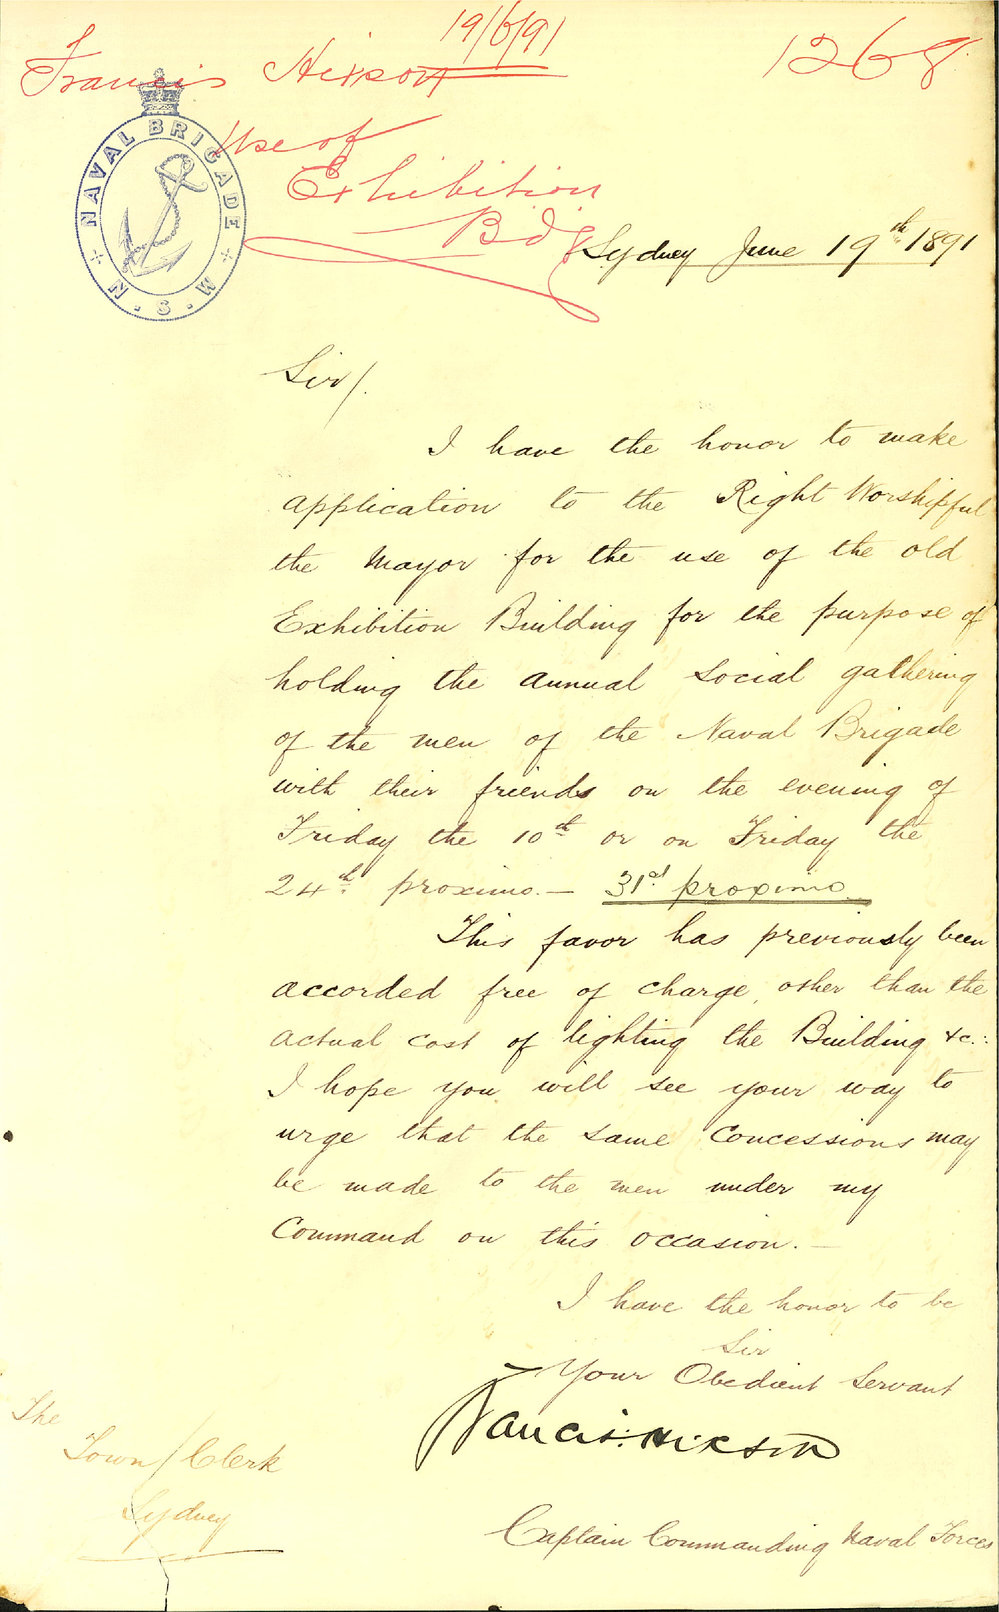 19/6/91
Francis Hixson
1268
Use of
Exhibition
Bdg
NAVAL BRIGADE
N.S.W
Sydney June 19th 1891
Sir/.
I have the honor to make
application to the Right Worshipful
the Mayor for the use of the old
Exhibition Building for the purpose of
holding the annual social gathering
of the men of the Naval Brigade
with their friends on the evening of
Friday the 10th or on Friday the
24th proximo. — 31st proximo
This favor has previously been
accorded free of charge, other than the
actual cost of lighting the Building &c.:
I hope you will see your way to
urge that the same concessions may
be made to the men under my
Command on this occasion. —
I have the honor to be
Sir
Your Obedient Servant
Francis Hixson
Captain Commanding Naval Forces
The
Town Clerk
Sydney